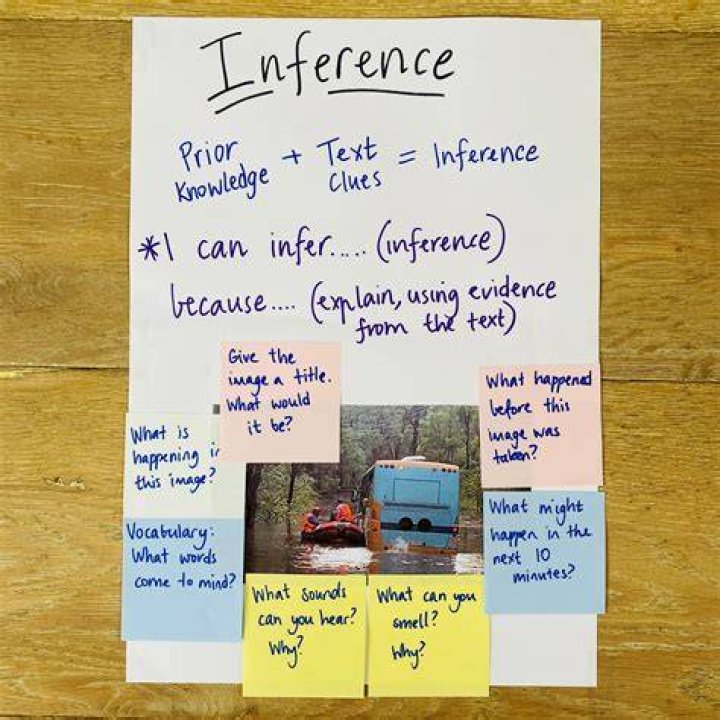 Inference
Prior
Knowledge + Text
Clues = Inference
*I can infer.... (inference)
because.... (explain, using evidence
from the text)
Give the
image a title.
What would
it be?
What happened
before this
image was
taken?
What is
happening in
this image?
Vocabulary:
What words
come to mind?
What might
happen in the
next 10
minutes?
What sounds
can you hear?
Why?
What can you
smell?
Why?